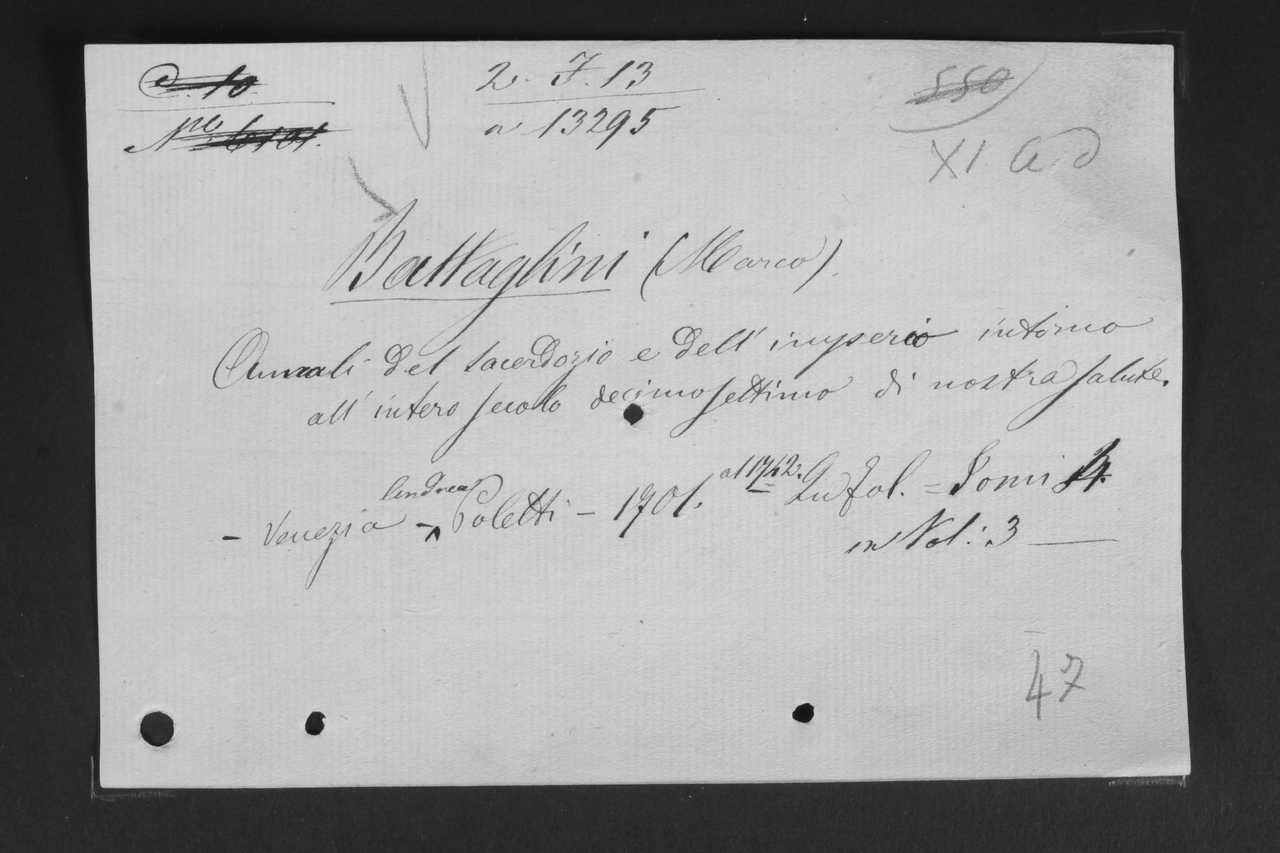 C. 10
2. F. 13
550
Nro 6101.
a 13295
XI a d
Battaglini (Marco).
Annali del sacerdozio e dell' imperio intorno
all' intero secolo decimosettimo di nostra salute.
- Venezia - Andrea Poletti - 1701. al 1742. In fol. = Tomi 4.
in Vol: 3
47